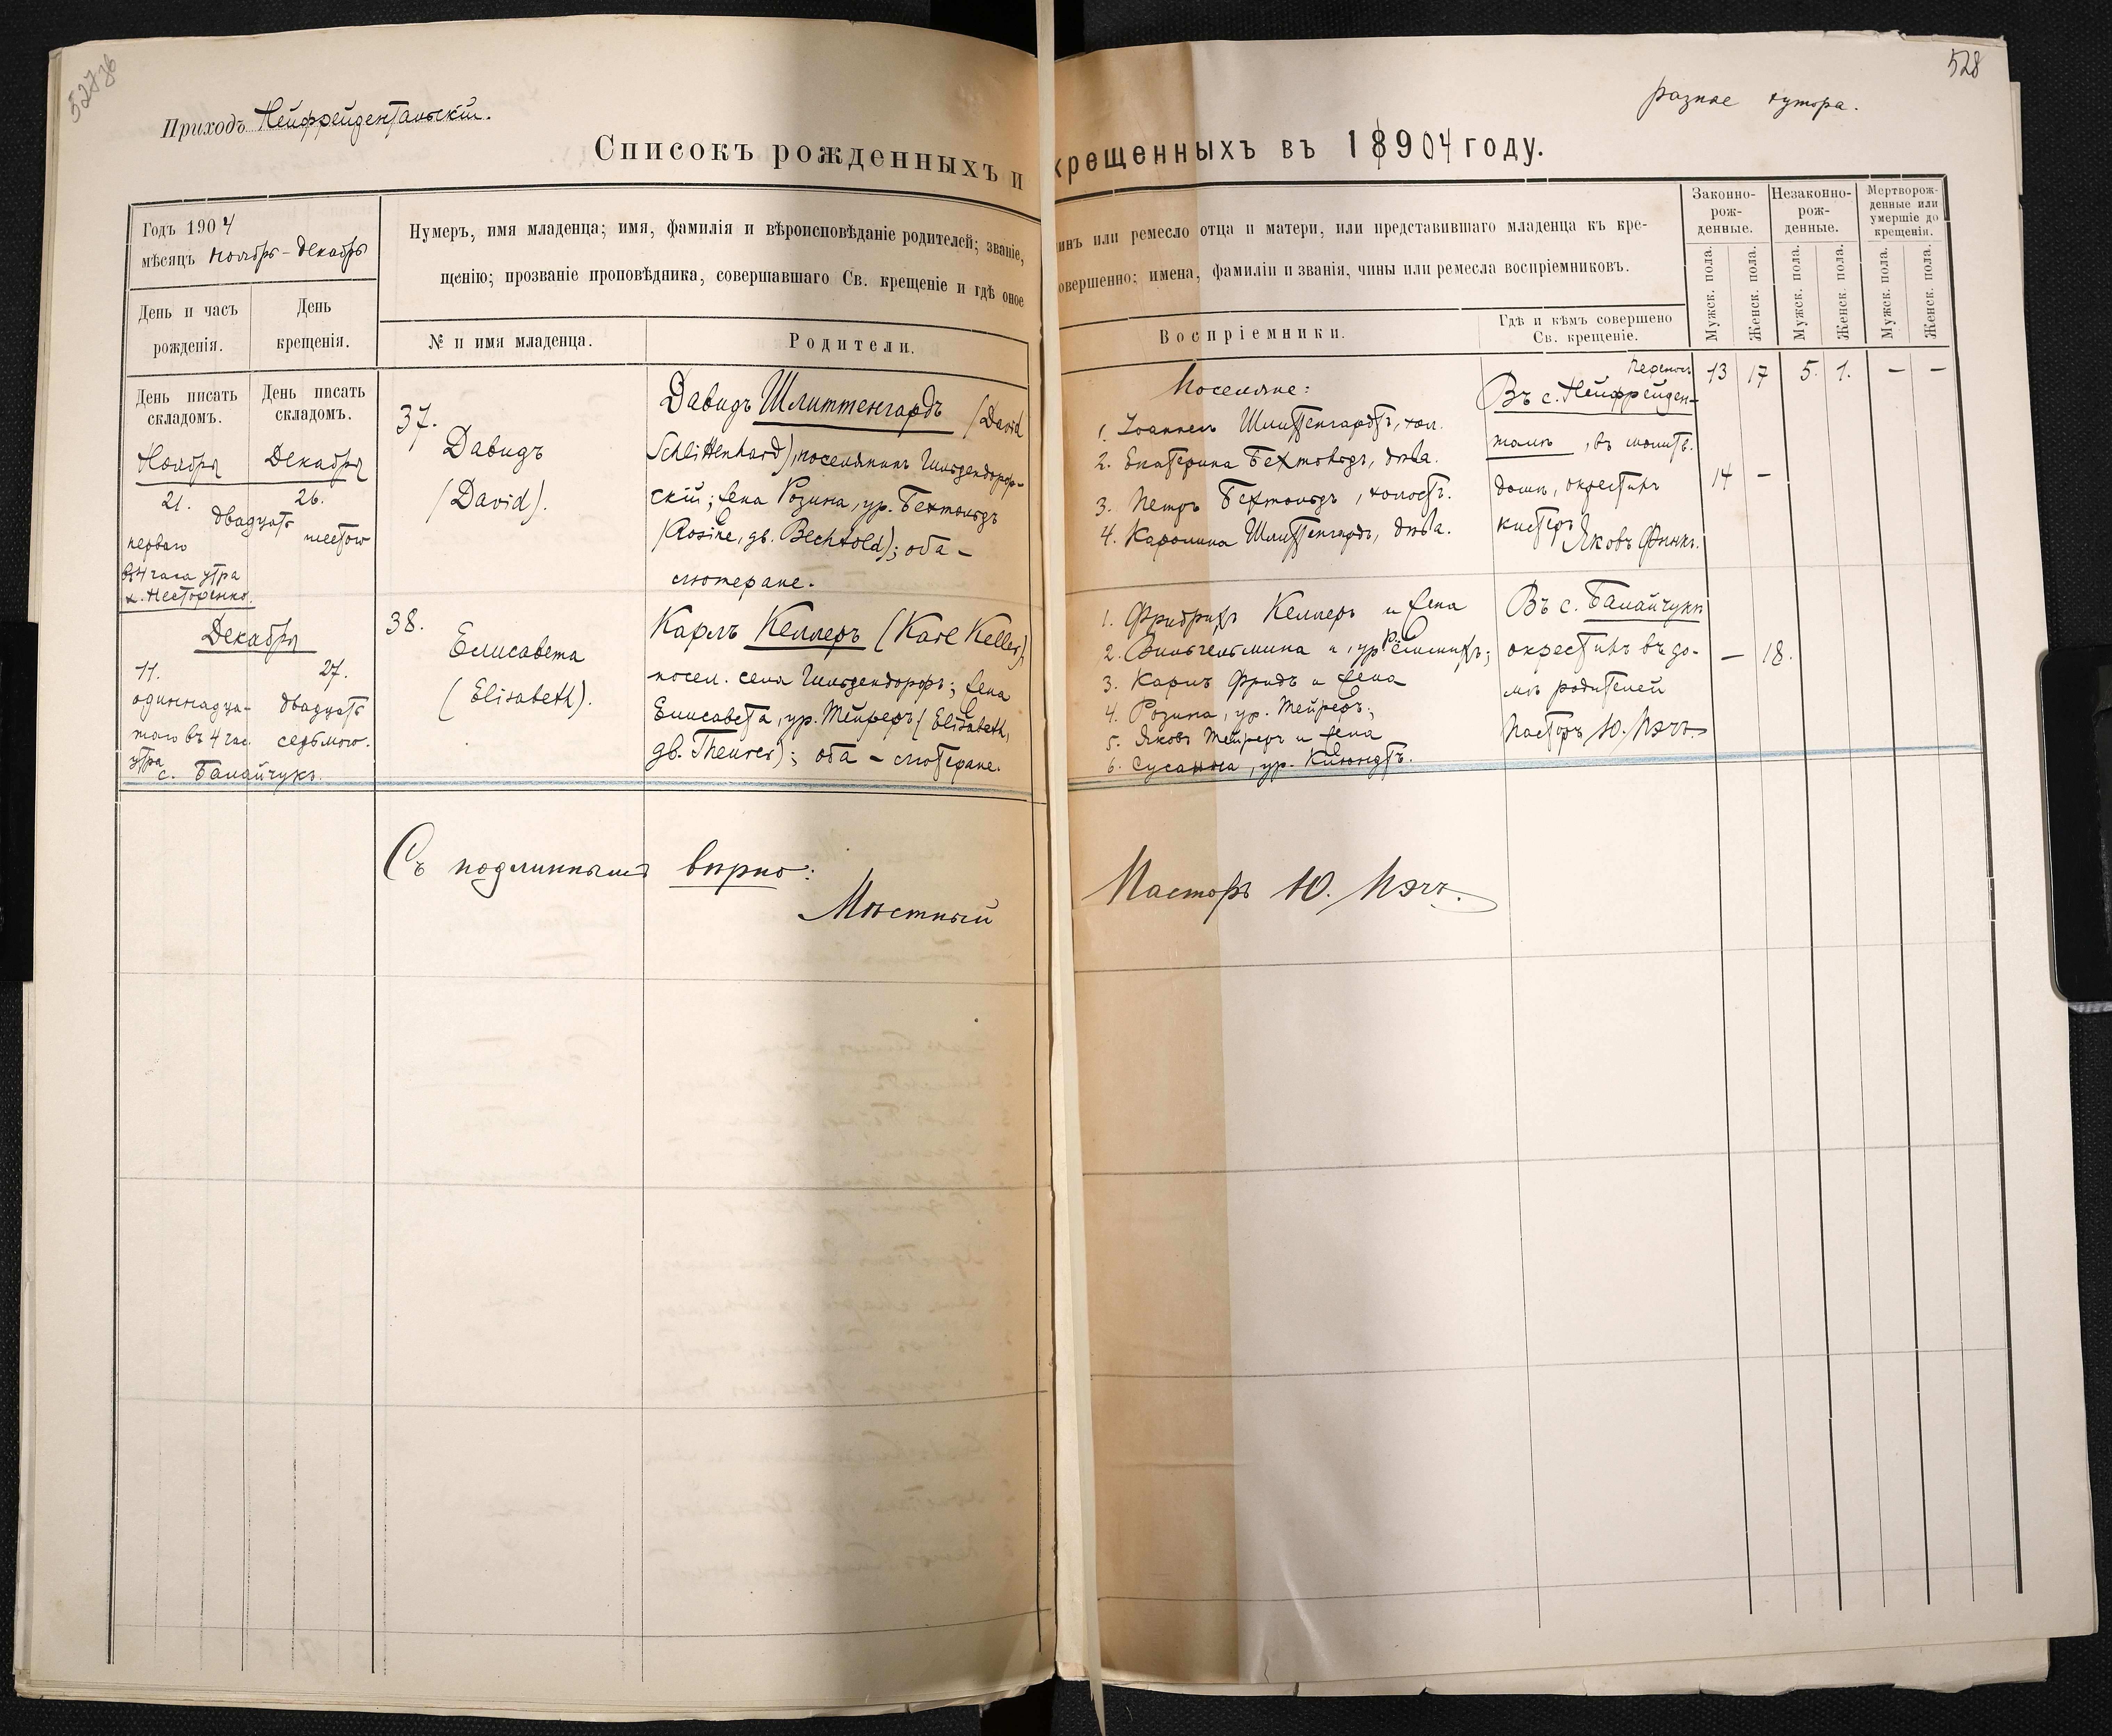 527об
528
Приходъ Нейфрейдентальскій.
разные хутора.
Списокъ рожденныхъ и крещенныхъ въ 18904 году.
Годъ 1904
мѣсяцъ Ноябрь – Декабрь
Нумеръ, имя младенца; имя, фамилія и вѣроисповѣданіе родителей; званіе,
щенію; прозваніе проповѣдника, совершавшаго Св. крещеніе и гдѣ оное
инъ или ремесло отца и матери, или представившаго младенца къ кре-
овершенно; имена, фамиліи и званія, чины или ремесла воспріемниковъ.
Законно-
рож-
денные.
Незаконно-
рож-
денные.
Мертворож-
денные или
умершіе до
крещенія.
Мужск. пола.
Женск. пола.
Мужск. пола.
Женск. пола.
Мужск. пола.
Женск. пола.
День и часъ
рожденія.
День
крещенія.
№ и имя младенца.
Родители.
Воспріемники.
Гдѣ и кѣмъ совершено
Св. крещеніе.
День писать
складомъ.
День писать
складомъ.
Ноября
21.
перваго
въ 4 часа утра
х. Несторенко.
Декабря
26.
двадцать
шестого
37.
Давидъ
(David).
Давидъ Шлиттенгардъ (David
Schlittenhard), поселянинъ Гильдендорф-
скій; жена Розина, ур. Бехтольдъ
(Rosine, gb. Bechtold); оба –
лютеране.
Поселяне:
1. Іоаннесъ Шлиттенгардтъ, хол.
2. Екатерина Бехтольдъ, дѣва.
3. Петръ Бехтольдъ, холост.
4. Каролина Шлиттенгардъ, дѣва.
Въ с. Нейфрейден-
талѣ, въ молитв.
домѣ, окрестилъ
кистеръ Яковъ Финкъ.
13 17 5. 1. – –
14 –
Декабря
11.
одиннадца-
таго въ 4 час.
утра
с. Балайчукъ.
27.
двадцать
седьмого.
38.
Елисавета
(Elisabeth).
Карлъ Келлеръ (Karl Keller),
посел. села Гильдендорфъ; жена
Елисавета, ур. Тейреръ (Elisabeth,
gb. Theurer); оба – лютеране.
1. Фридрихъ Келлеръ и жена
3. Карлъ Фридъ и жена
4. Розина, ур. Тейреръ;
5. Яковъ Тейреръ и жена
6. Сусанна, ур.
Въ с. Балайчукъ
окрестилъ въ до-
мѣ родителей
Пасторъ Ю. Пэчъ.
– 18.
Съ подлиннымъ вѣрно:
Мѣстный
Пасторъ Ю. Пэчъ.